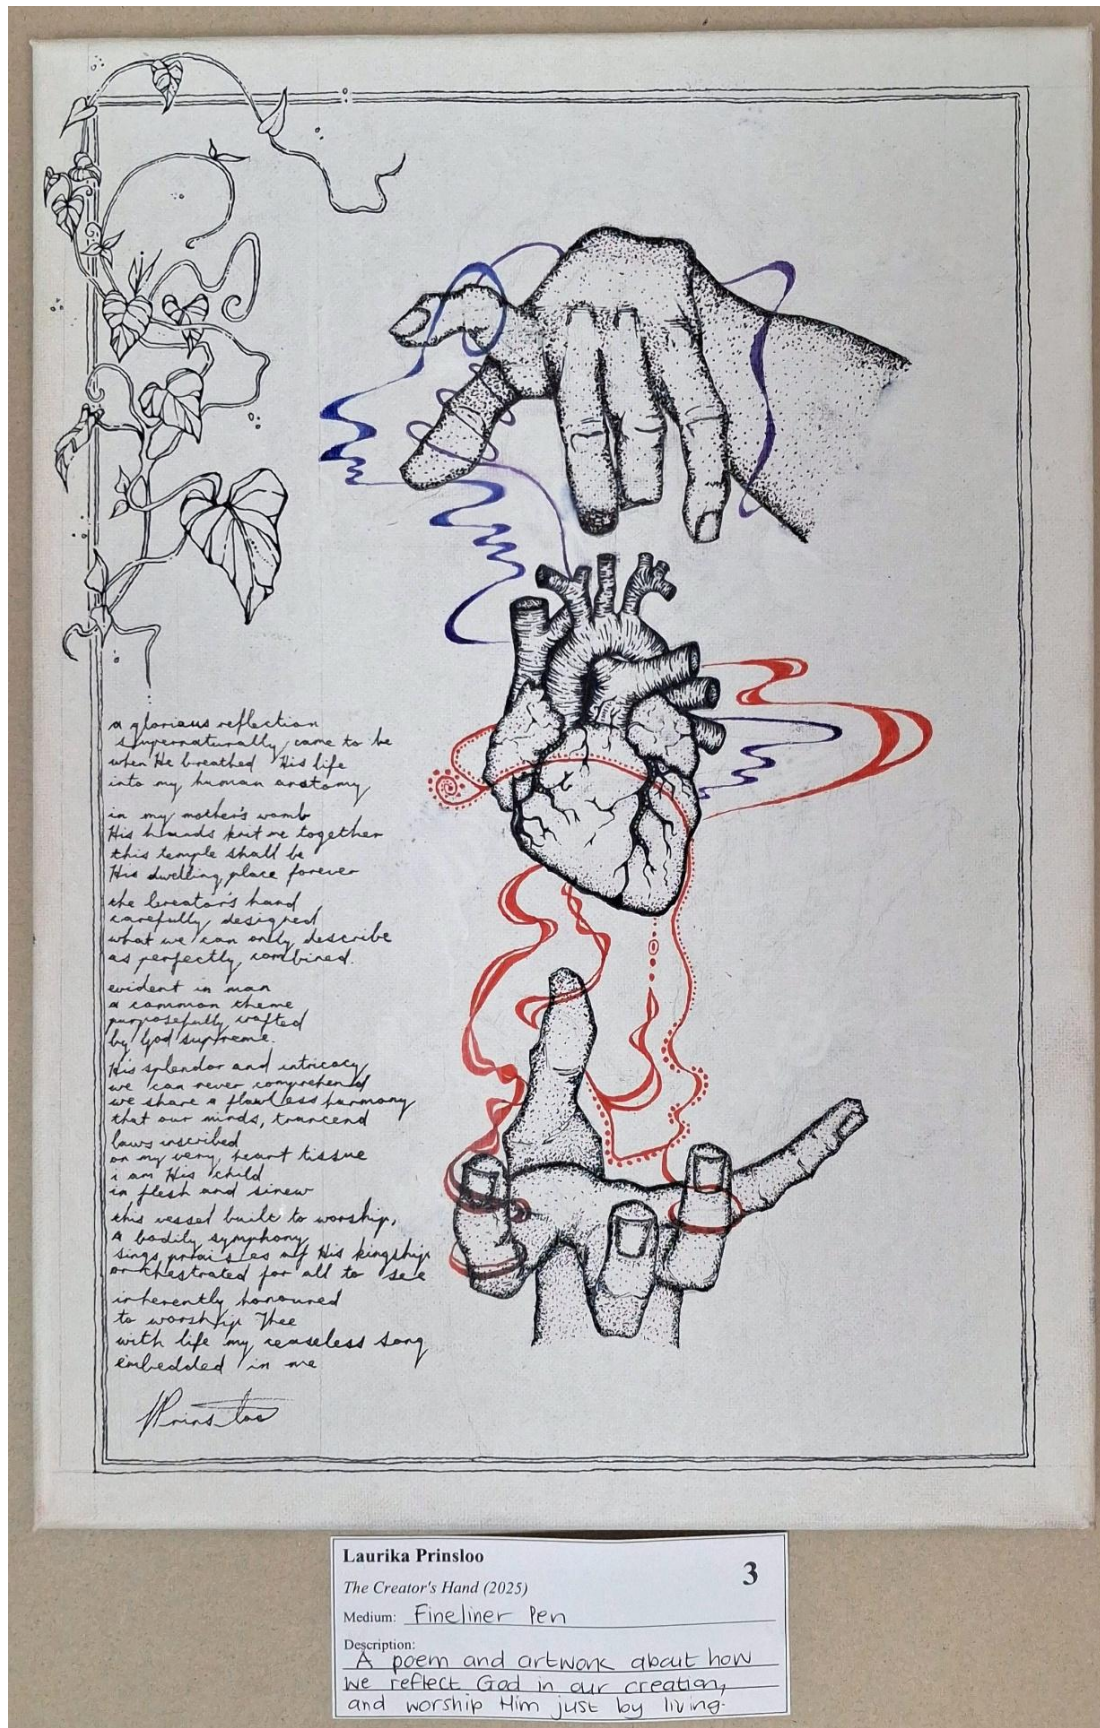 a glorious reflection
supernaturally come to be
when He breathed His life
into my human anatomy
in my mother's womb
His hands knit me together
this temple shall be
His dwelling place forever
the Creator's hand
carefully designed
what we can only describe
as perfectly combined.
evident in man
a common theme
purposefully crafted
by God supreme.
His splendor and intricacy
we can never comprehend
we share a flawless harmony
that our minds, trancend
laws inscribed
on my very, heart tissue
i am His child
in flesh and sinew
this vessel built to worship,
a bodily symphony
sings praises of His kingship
orchestrated for all to see
inherently honoured
to worship Thee
with life my ceaseless song
embedded in me
Prinsloo
Laurika Prinsloo
3
The Creator's Hand (2025)
Medium: Fineliner Pen
Description:
A poem and artwork about how
we reflect God in our creation,
and worship Him just by living.